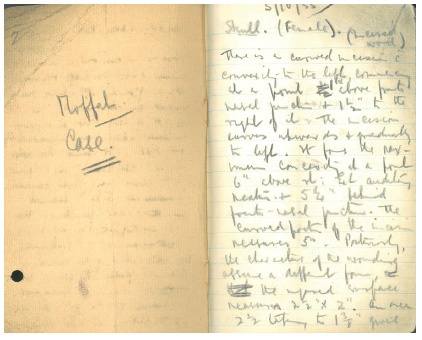 Moffat
Case.
5/10/35
Skull. (Female). (Incised wound)
There is a curved incision c
convexity to the left, commencing
at a point 1½" above fronto
nasal junction + 1½" to the
right of it. The incision
curves upwards & gradually
to left. It forms the max-
imum convexity at a point
6" above rt. ext. auditory
meatus + 5¾" behind
fronto-nasal junction. The
curved part of the incision
measures 5". Posteriorly,
the character of the wounding
assume a different form,
the exposed surface
measures 2½" x 2". An area
2½ tapering to 1¾"